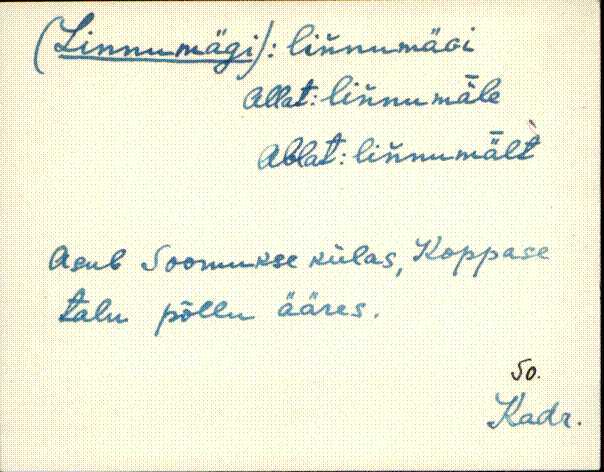 (Linnumägi): lin̆numäɢi
Allat: lin̆numäle
Ablat: lin̆numält
Asub Soomukse külas, Koppase
talu põllu ääres.
So.
Kadr.